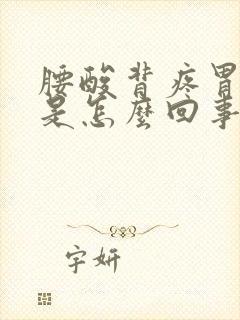 腰酸背疼胃
是怎麼回事
字妍